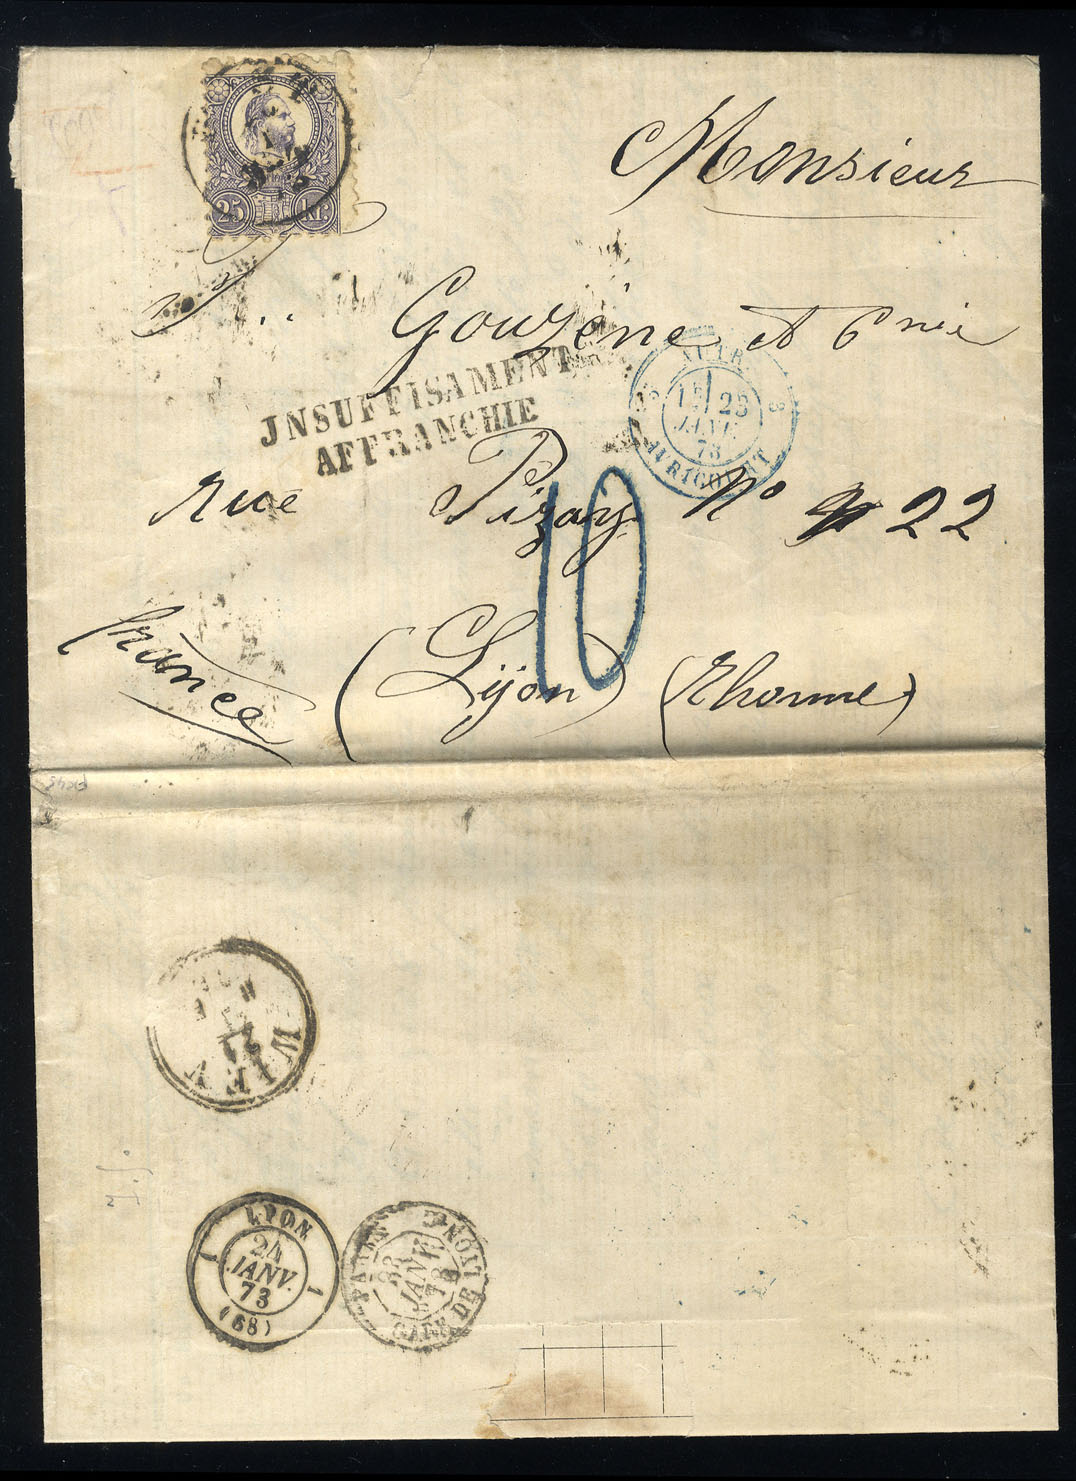 25 kr:
Monsieur
Gouzène et Cnie
JNSUFFISAMENT
AFFRANCHIE
AUTR.
23
JANV.
73
AVRICOURT
rue Pizay No 22
10
france (Lyon) (Rhonne)
WIEN
21
LYON
24
JANV.
73
(68)
PARIS
23
JANV.
73
GARE DE LYON